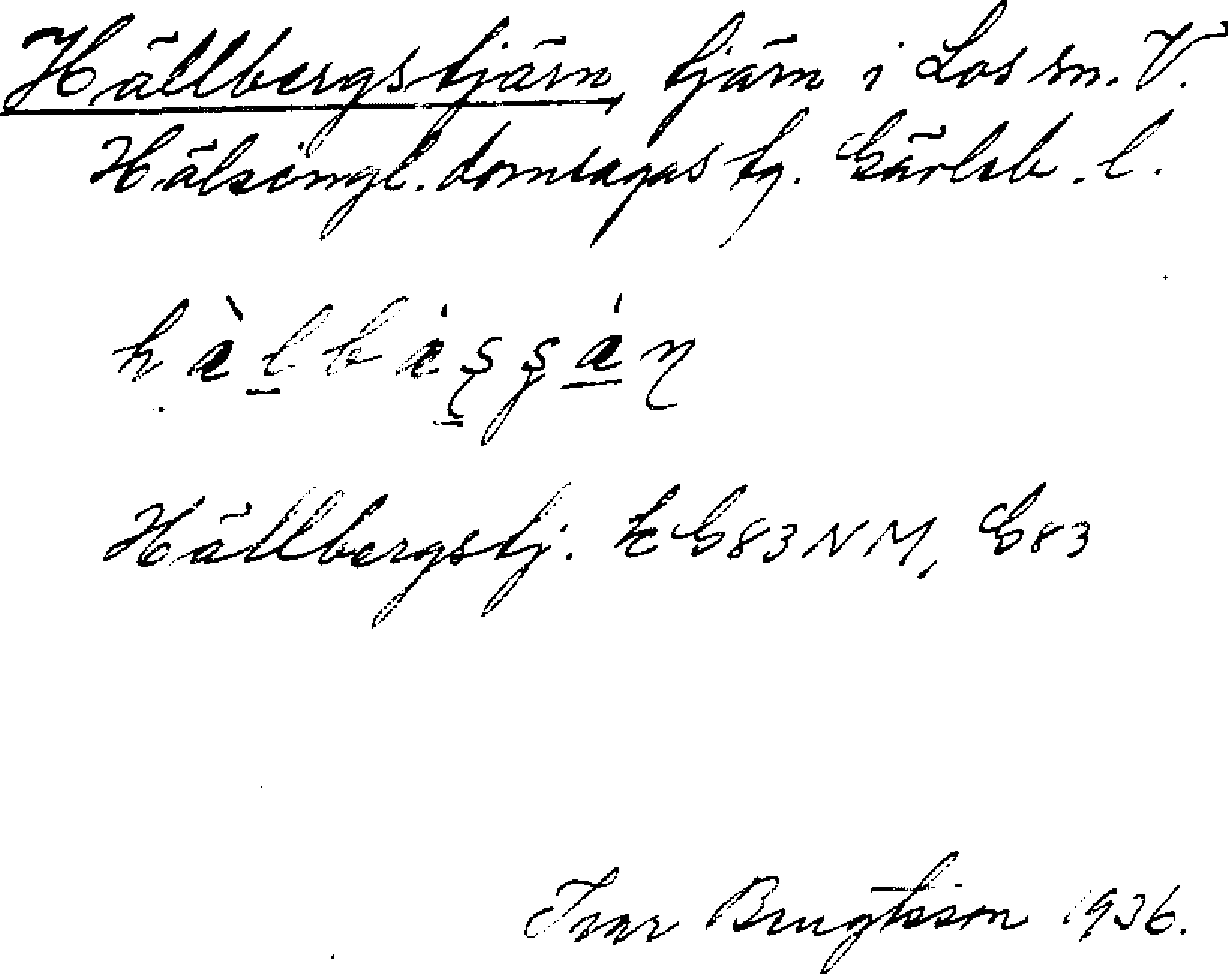 Hällbergstjärn, tjärn i Los sn. V.
Hälsingl. domsagas tg. Gävleb. l.
Hällbergstj. EG83NM, G83
Ivar Bengtsson 1936.